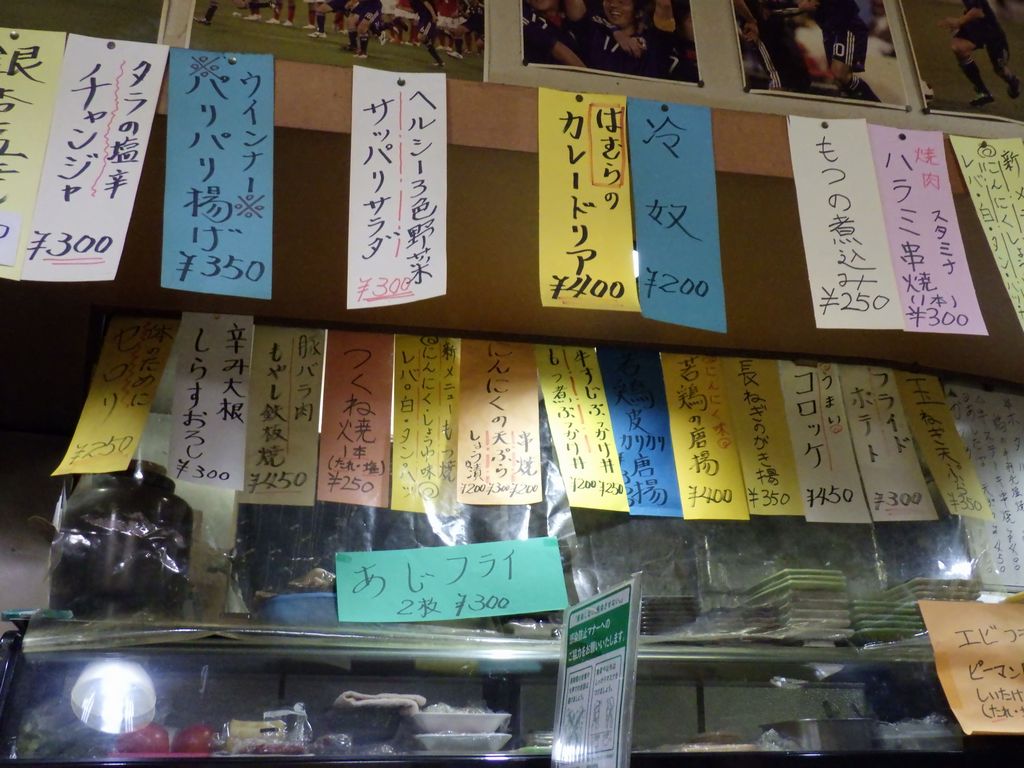 タラの塩辛
チャンジャ
¥300
ウインナー※
※パリパリ揚げ
¥350
ヘルシー3色野菜
サッパリサラダ
¥300
はむらの
カレードリア
¥400
冷奴
¥200
もつの煮込み
¥250
焼肉
スタミナ
ハラミ串焼(1本)
¥300
新
セロリ
¥250
辛み大根
しらすおろし
¥300
豚バラ肉
もやし鉄板焼
¥450
つくね焼
1本
(たれ・塩)
¥250
新メニューもつ焼
にんにく・しょうゆ味
レバ・白・タン・ハツ
にんにくの天ぷら
串焼
しょう油漬
¥200
¥300
¥200
牛すじぶっかけ丼
もつ煮ぶっかけ丼
¥200
¥250
若鶏皮カリカリ唐揚
にんにく味
若鶏の唐揚
¥400
長ねぎのかき揚
¥350
うまい
コロッケ
¥450
フライド
ポテト
¥300
玉ねぎ天ぷら
¥350
あじフライ
2枚 ¥300
感染防止マナーへの
ご協力をお願いいたします。
エビフ
ピーマン
しいたけ
(たれ・